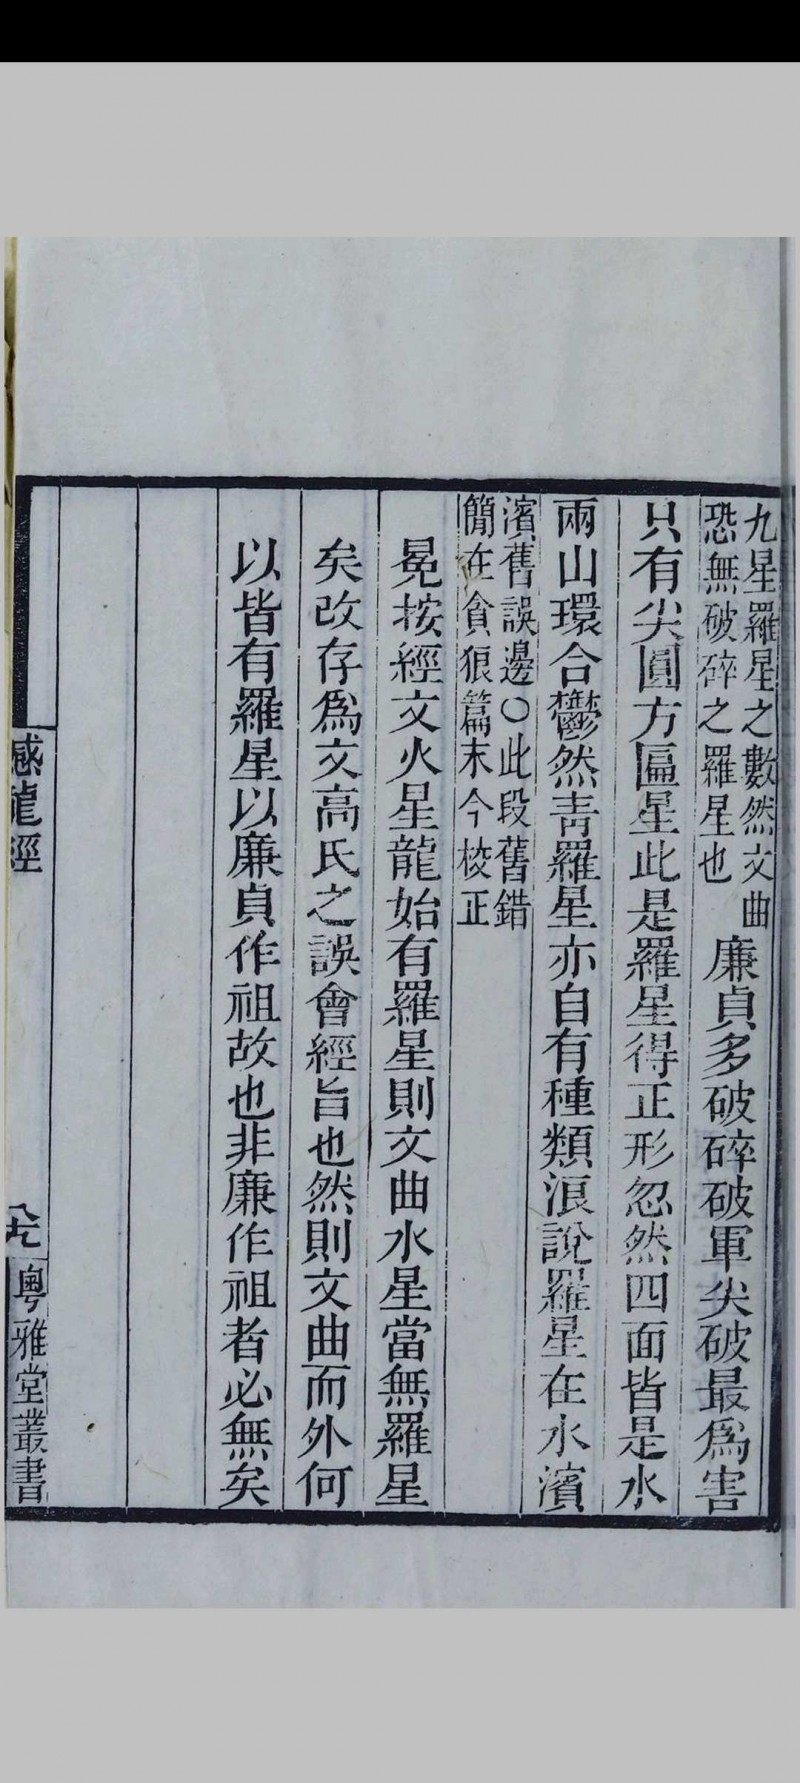 九星羅星之數然文曲
恐無破碎之羅星也
廉貞多破碎破軍尖破最爲害
只有尖圓方匾星此是羅星得正形忽然四面皆是水
兩山環合鬱然青羅星亦自有種類浪說羅星在水濱
濱舊誤邊○此段舊錯
簡在貪狼篇末今校正
冕按經文火星龍始有羅星則文曲水星當無羅星
矣改存爲文高氏之誤會經旨也然則文曲而外何
以皆有羅星以廉貞作祖故也非廉作祖者必無矣
龍經
粵雅堂叢書